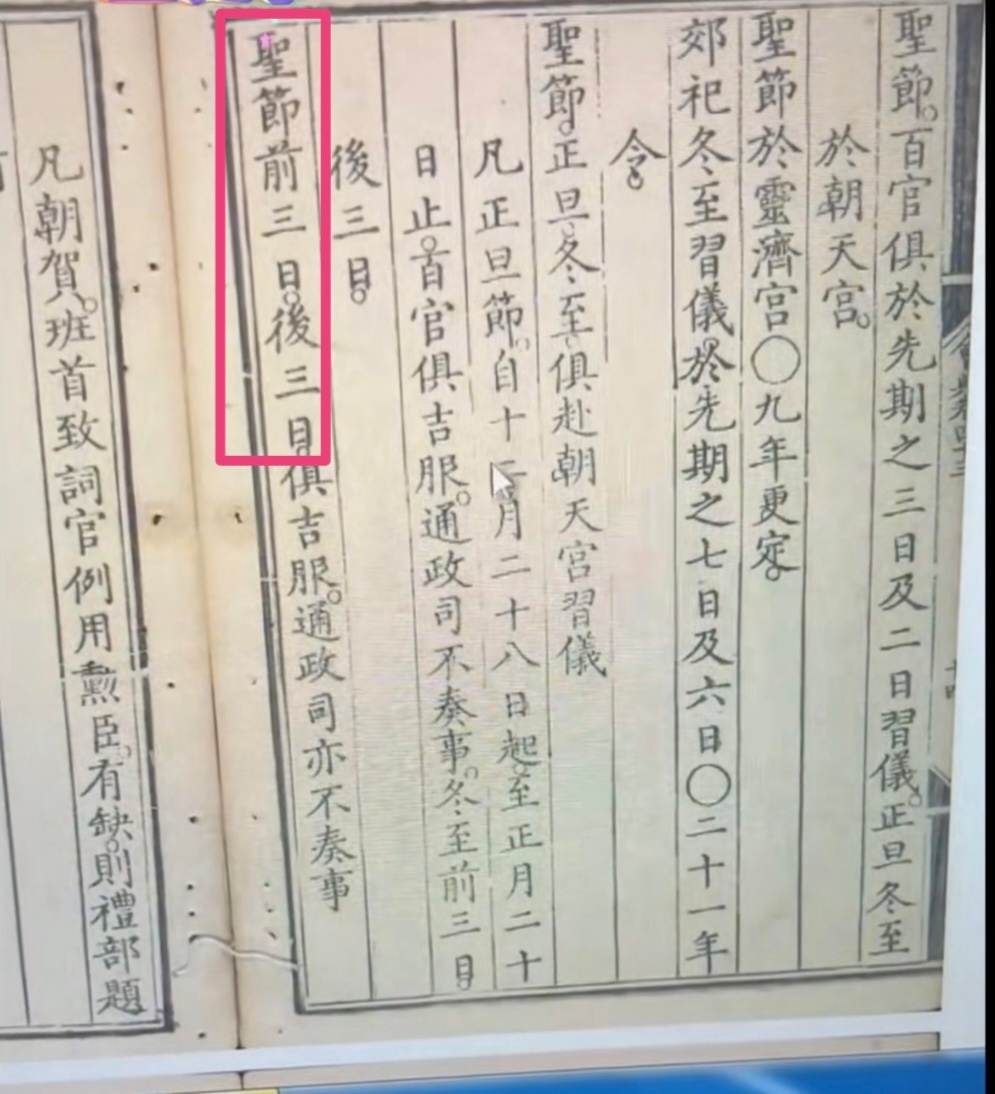 聖節。百官俱於先期之三日及二日習儀。正旦冬至
於朝天宮。
聖節於靈濟宮〇九年更定。
郊祀冬至習儀。於先期之七日及六日〇二十一年
令。
聖節。正旦。冬至。俱赴朝天宮習儀
凡正旦節。自十二月二十八日起。至正月二十
日止。百官俱吉服。通政司不奏事。冬至前三日。
後三日。
聖節前三日。後三日。俱吉服。通政司亦不奏事
凡朝賀。班首致詞官例用勲臣。有缺。則禮部題